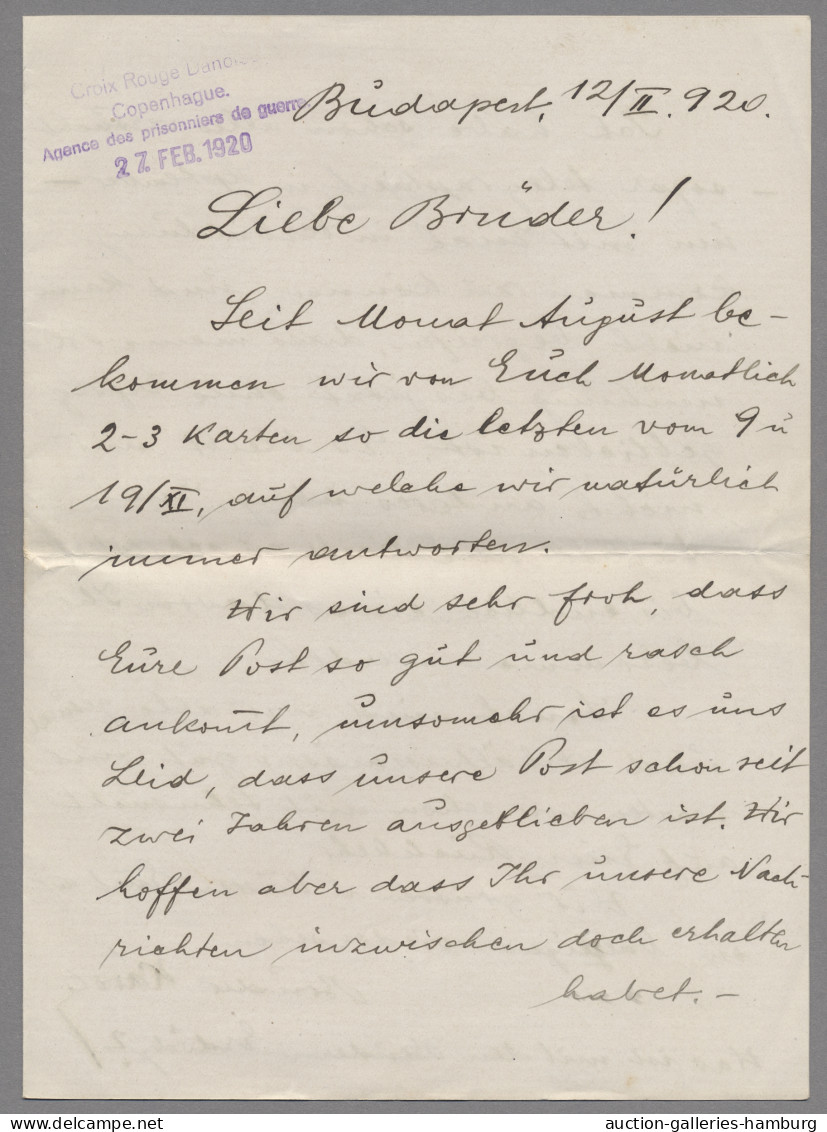 Croix Rouge Danoise
Copenhague.
Agence des prisonniers de guerre.
27. FEB. 1920
Budapest, 12/II. 920.
Liebe Brüder!
Seit Monat August be-
kommen wir von Euch Monatlich
2-3 Karten so die letzten vom 9 u
19/XI, auf welche wir natürlich
immer antworten.
Wir sind sehr froh, dass
Eure Post so gut und rasch
ankom̄t, umsomehr ist es uns
Leid, dass unsere Post schon seit
zwei Jahren ausgeblieben ist. Wir
hoffen aber dass Ihr unsere Nach-
richten inzwischen doch erhalten
habet. -
auction-galleries-hamburg